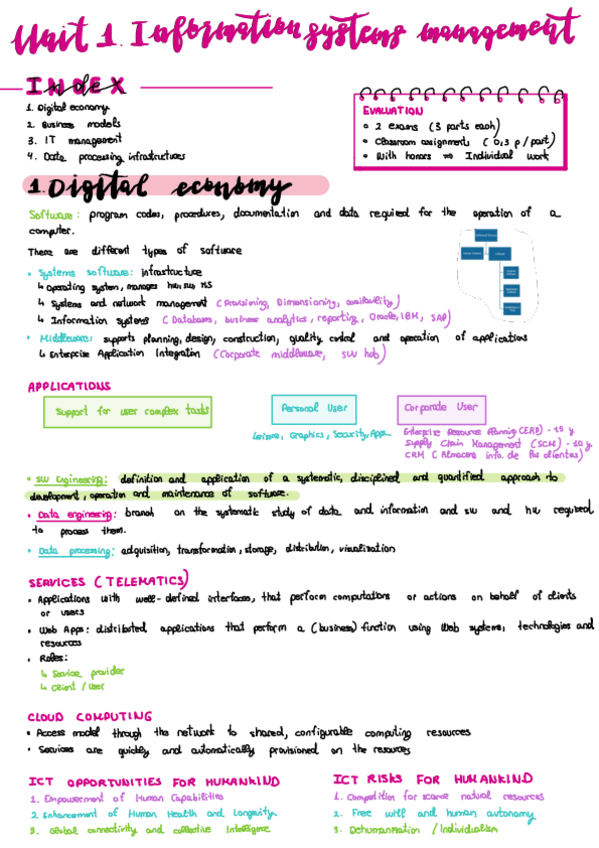 Unit 1. Information systems management
INDEX
1. Digital economy
2. Business models
3. IT management
4. Data processing infrastructures
EVALUATION
2 exams (3 parts each)
Classroom assignments (0:3 p/part)
With honors ⇒ Individual work
1. Digital economy
Software: program codes, procedures, documentation and data required for the operation of a
computer.
There are different types of software
• Systems software: infrastructure
↳ Operating system, manages
↳ Systems and network management (Provisioning, Dimensioning, availability)
↳ Information systems (Databases, business analytics, reporting, Oracle, IBM, SAP)
• Middleware: supports planning, design, construction, quality control and operation of applications
↳ Enterprise Application Integration (Corporate middleware, SW hub)
APPLICATIONS
Support for user complex tasks
Personal User
Corporate User
Leisure, Graphics, Security, Apps
Enterprise Resource Planning (ERP) - 15 y
Supply Chain Management (SCM) - 10 y
CRM (Almacena info. de los clientes)
• SW Engineering: definition and application of a systematic, disciplined and quantified approach to
development, operation and maintenance of software.
• Data engineering: branch on the systematic study of data and information and sw and hw required
to process them.
• Data processing: adquisition, transformation, storage, distribution, visualization
SERVICES (TELEMATICS)
• Applications with well-defined interfaces, that perform computations or actions on behalf of clients
or users
• Web Apps: distributed applications that perform a (business) function using Web systems, technologies and
resources
• Roles:
↳ Service provider
↳ Client / user
CLOUD COMPUTING
• Access model through the network to shared, configurable computing resources
• Services are quickly and automatically provisioned on the resources
ICT OPPORTUNITIES FOR HUMANKIND
1. Empowerment of Human Capabilities
2. Enhancement of Human Health and Longevity
3. Global connectivity and collective Intelligence
ICT RISKS FOR HUMANKIND
1. Competition for scarce natural resources
2. Free will and human autonomy
3. Dehumanisation / Individualism